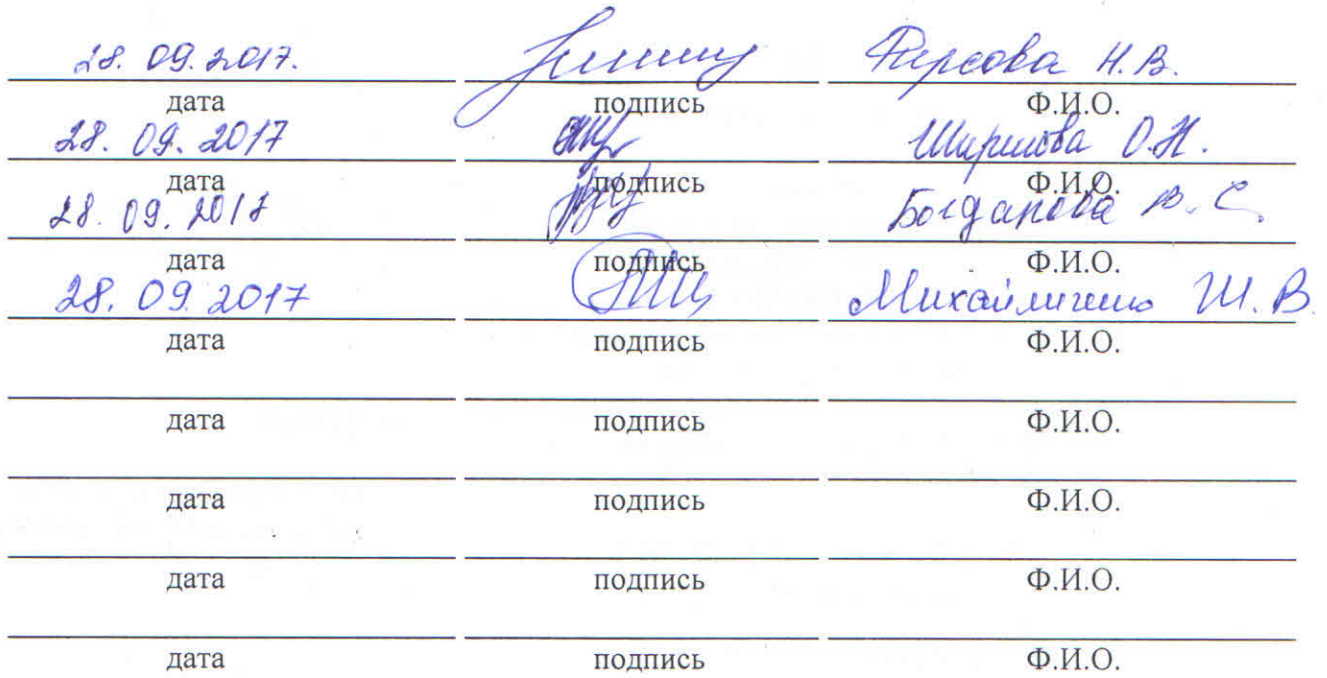 28.09.2017. Фирсова Н.В.
дата подпись Ф.И.О.
28.09.2017 О.Н.
дата подпись Ф.И.О.
28.09.2017 Богданова В.С.
дата подпись Ф.И.О.
28.09.2017 Михайличенко Ш.В.
дата подпись Ф.И.О.
дата подпись Ф.И.О.
дата подпись Ф.И.О.
дата подпись Ф.И.О.
дата подпись Ф.И.О.